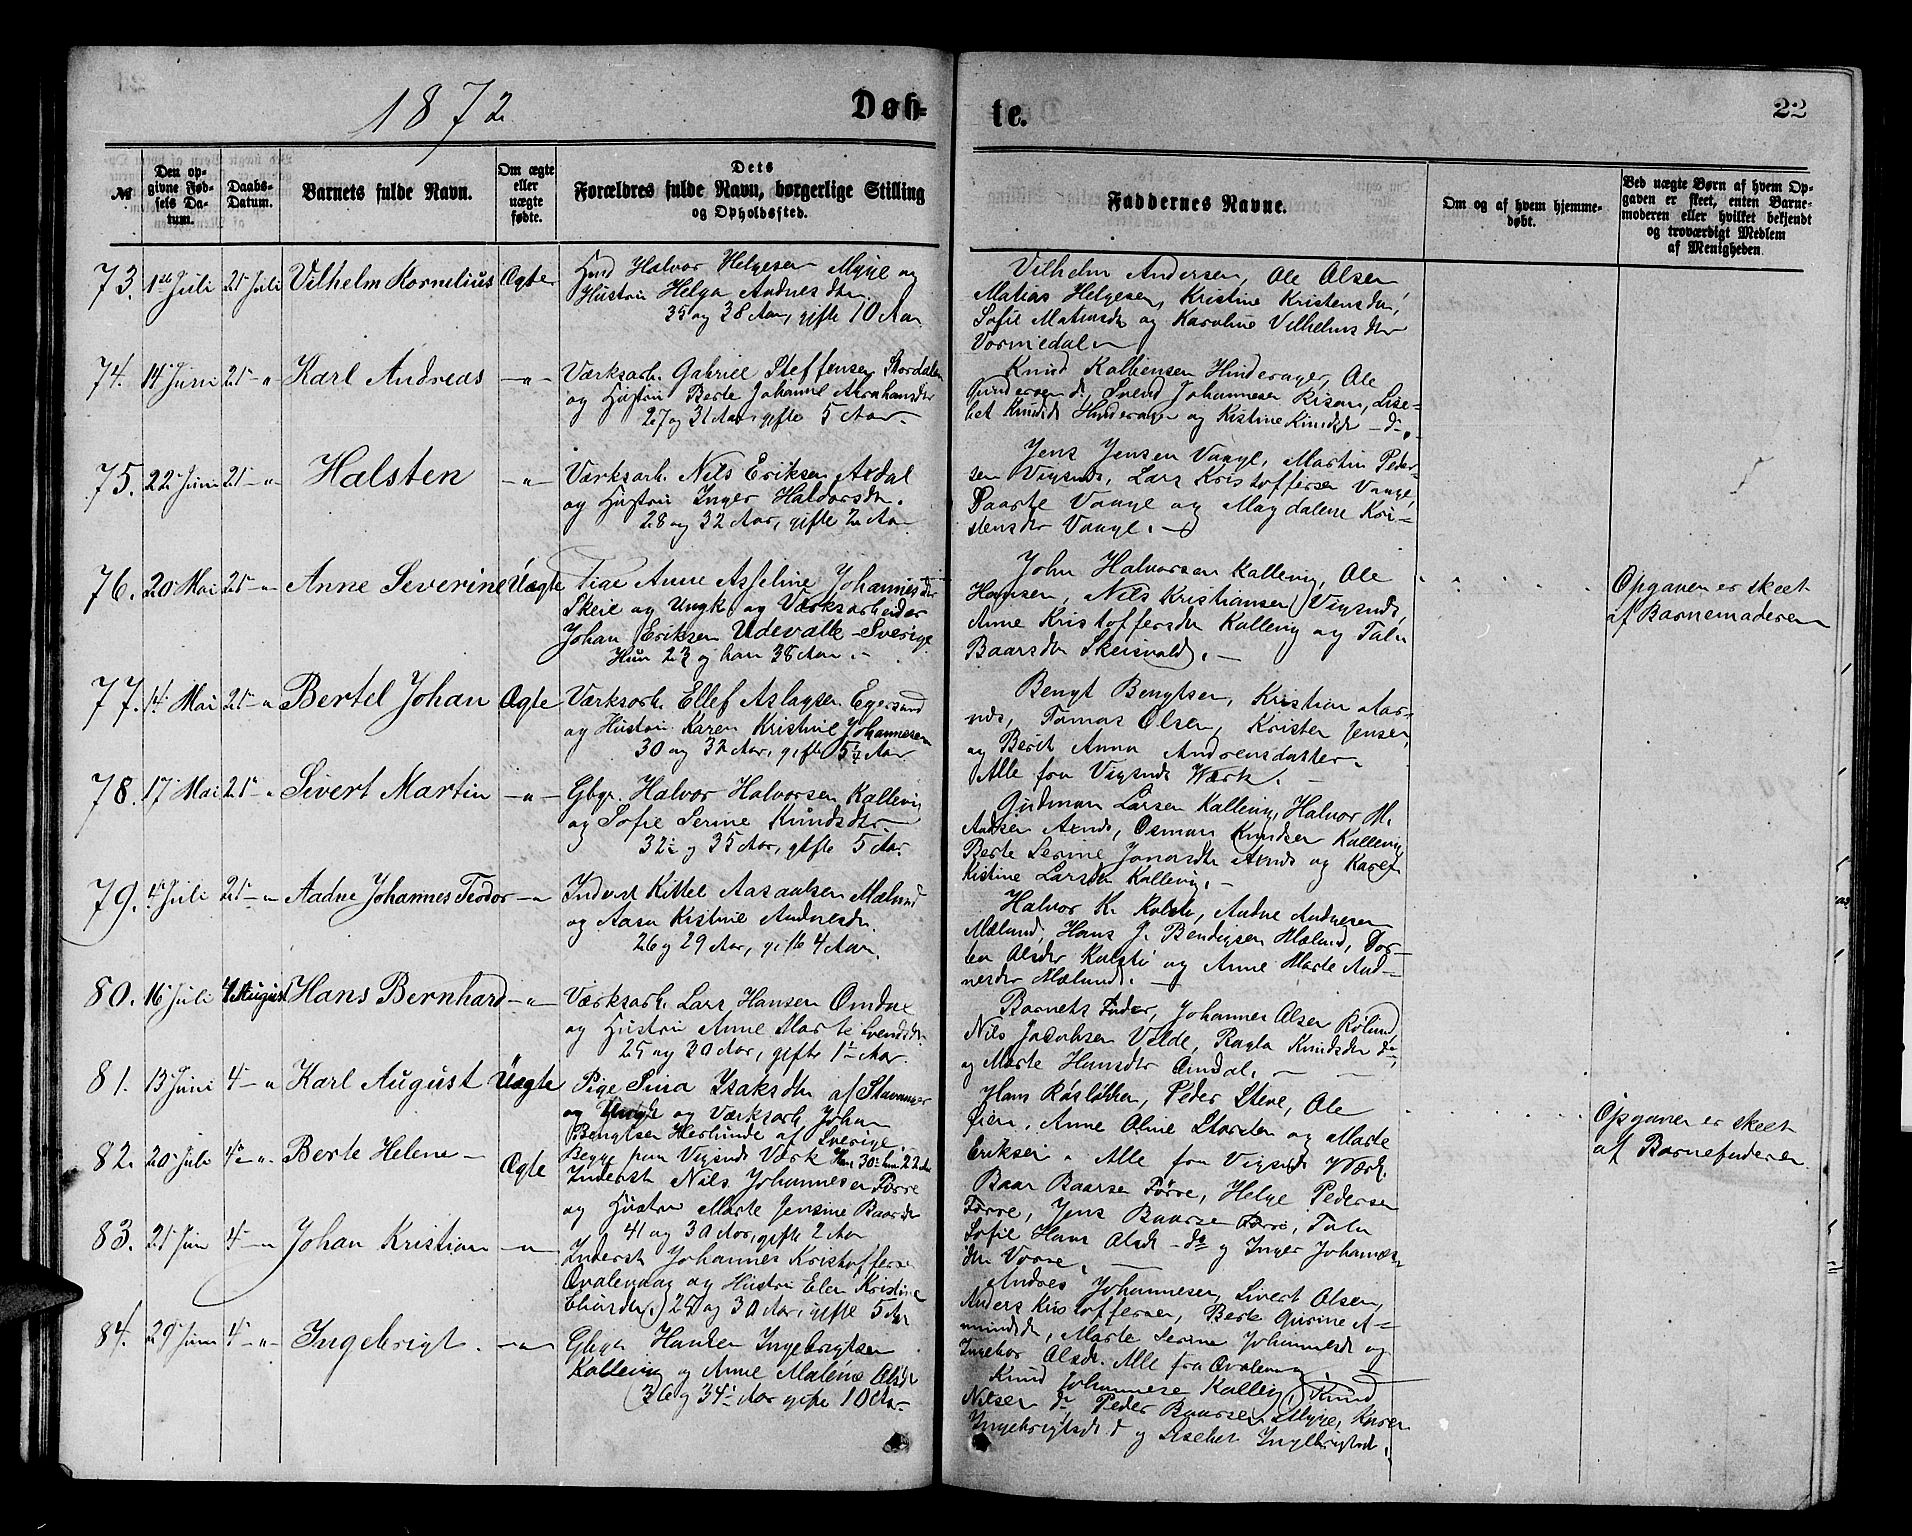 1872
Døb-
te.
22
№
Den op-
givne Fød-
sels Da-
tum.
Daabs-
Datum.
Barnets fulde Navn.
Om ægte
eller
uægte
fødte.
Dets
Forældres fulde Navn, borgerlige Stilling
og Opholdssted.
Faddernes Navne.
Om og af hvem hjemme-
døbt.
Ved uægte Børn af hvem Op-
gaven er skeet, enten Barne-
moderen eller hvilket bekjendt
og troværdigt Medlem
af Menigheden.
73. 1ste Juli 25 Juli Vilhelm Kornelius Ægte
Halvor Helgesen Myge og
Hustru Helga Andnesdtr.
35 og 38 Aar, gifte 10 Aar
Vilhelm Andersen, Ole Olsen
Matias Helgesen, Kristine Kristensdtr,
Sofie og Karoline Vilhelmsdtr
Vormedalen
74. 14 Juni 25 - " Karl Andreas - " -
Værksarb. Gabriel Steffensen Stordalen
og Hustru Berte Johanne Abrahamsdtr
27 og 31 Aar, gifte 5 Aar
Knud Hinderager, Ole
Gundersen do, Svend Johannesen Risøen, Lise-
bet Knudsdtr Hinderager og Kistine Knudsdtr - do.
75. 22 Juni 25 - " Halsten - " -
Værksarb. Nils Eriksen Ardal
og Hustru Inger Haldorsdtr.
28 og 32 Aar, gifte 2 Aar
Jens Jensen Vaage, Martin Peder-
sen Vigsnæs, Lars Kristoffersen Vaage,
Vaage og Magdalene Kri-
stensdtr Vaage. -
76. 20 Mai 25 - " Anne Severine Uægte
Pige Anne Asseline Johannesdtr
Skeie og Ungk. og Værksarbeider
Johan Eriksen Udevalle - Sverige
Hun 23 og han 38 Aar. -
John Halvorsen Kallevig, Ole
Hansen, Nils Kristiansen Vigsnæs,
Anne Kristoffersdtr Kallevig og Tala
Baarsdtr Skeisvold. -
Opgaven er skeet
af Barnemoderen
77. 14 Mai 25 - " Bertel Johan Ægte
Værksarb. Ellef Aslagsen Egersund
og Hustru Karen Kristine Johannesen
30 og 32 Aar, gifte 5½ Aar
Bengt Bengtsen, Kristian Aar-
næs, Tomas Olsen, Kristen Jensen,
og Berit Anna Andreasdatter.
Alle fra Vigsnæs Værk. -
78. 17 Mai 25 - " Sivert Martin - " -
Gbgr. Halvor Halvorsen Kallevig
og Sofie Serine Knudsdtr
32 og 35 Aar, gifte 5 Aar.
Gudman Larsen Kallevig, Halvor M.
Osman Knudsen Kallevig,
Berte Serine Jonasdtr og Karen
Kistine Larsdtr Kallevig. -
79. 4 Juli 25 - " Aadne Johannes Teodor - "
Inderst Kittel Mælund
og Aasa Kistine Andnesdtr.
26 og 29 Aar, gifte 4 Aar.
Halvor K. Kolstø, Andne Andnesen
Mælund, Hans J. Bendigsen Mælund, Tor-
Olsdtr Kolstø og Anne Marte And-
nesdtr Mælund. -
80. 16 Juli 4 August Hans Bernhard - " -
Værksarb. Lars Hansen Omdal
og Hustru Anne Marte Svendsdtr
25 og 30 Aar, gifte 1 Aar.
Barnets Fader, Johannes Olsen
Nils Jakobsen Velde, Knudsdtr do,
og Marte Hansdtr Omdal. -
81. 13 Juni 4 - " Karl August Uægte
Pige Sina Isaksdtr af Stavanger
og og Værksarb. Johan
Bengtsen af Sverige
Begge paa Vigsnæs Værk Han 30 hun 22 Aar
Hans Peder Stene, Ole
Anne Oline og Marte
Eriksen. Alle fra Vigsnæs Værk.
Opgaven er skeet
af Barnefaderen
82. 20 Juli 4 - " - Berte Helene - Ægte
Inderst Nils Johannesen Førre
og Hustru Marte Jensine Baarsdtr
41 og 30 Aar, gifte 2 Aar
Baar Baarsen Førre, Helge Pedersen
Førre, Jens Baarsen Førre, Tala
Sofie Hans Olsdtr - do og Inger Johannes-
dtr Vorre. -
83. 25 Juni 4 - " Johan Kristian - " -
Inderst Johannes Kristoffersen
Kvalevaag og Hustru Elen Kristine
25 og 30 Aar, gifte 5 Aar
Andres Johannesen, Sivert Olsen,
Anders Kristoffersen, Berte Gurine A-
mundsdtr, Marte Serine Johannesdtr og
Ingebor Olsdtr. Alle fra Kvalevaag
84. 29 Juni 4 - " - Ingebrigt. - " -
Gbgr. Ingebrigtsen
Kallevig og Anne Malene Olsdtr
36 og 34 Aar gifte 10 Aar.
Knud Johannesen Kallevig, Knud
Nilsen do, Peder Baarsen Myge, Karen
Ingebrigtsdtr do og Lisebet Ingebrigtsdtr.